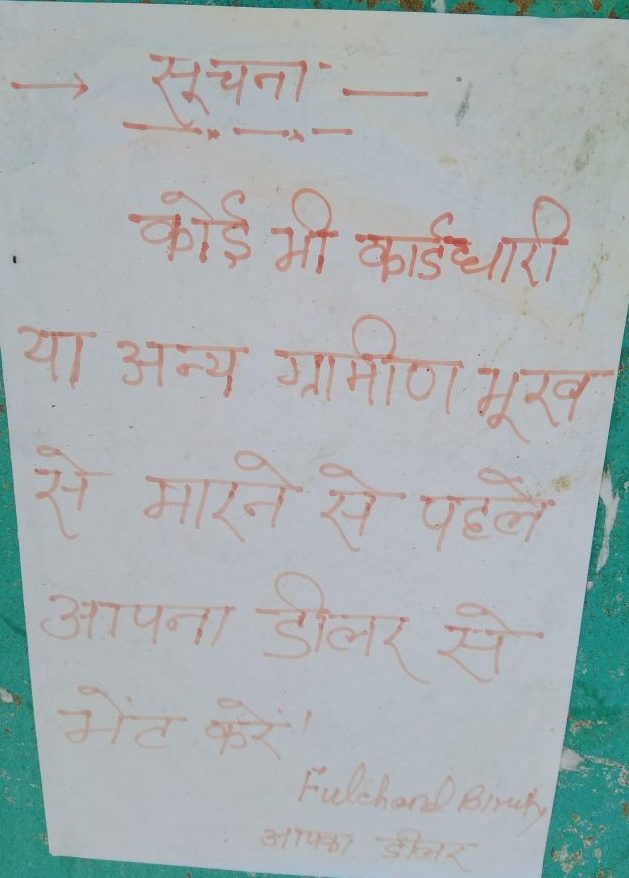 → सूचना —
कोई भी कार्डधारी
या अन्य ग्रामीण भूख
से मारने से पहले
आपना डीलर से
भेंट करें।
Fulchand Biruly
आपका डीलर